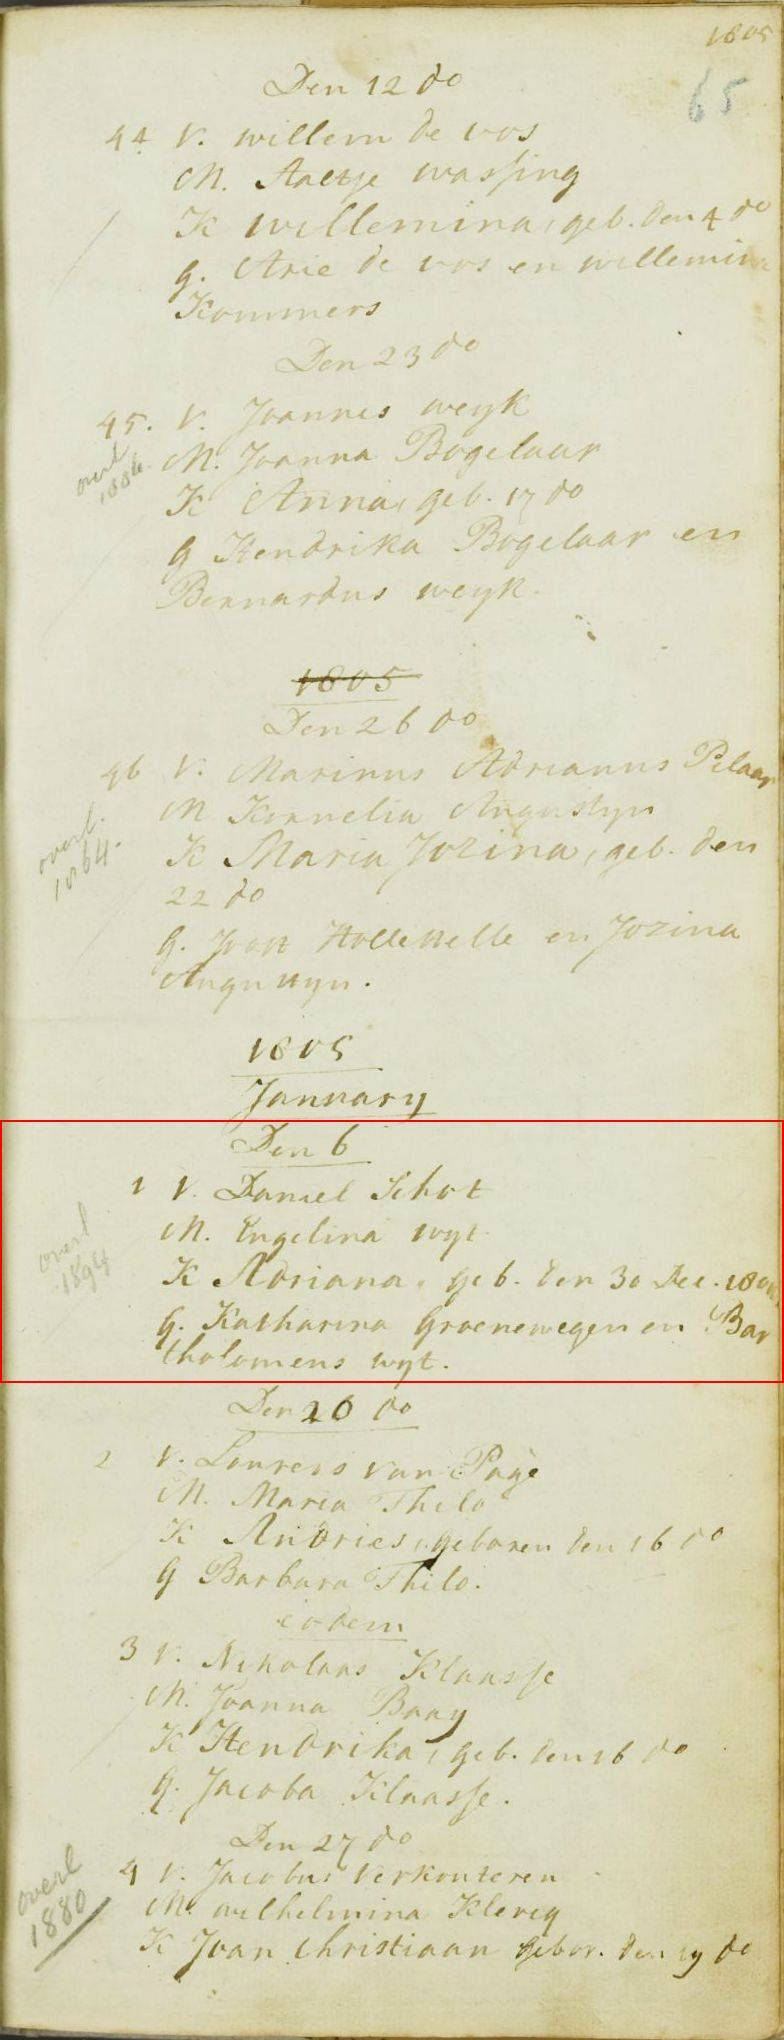 1805
65
Den 12 do
44 V. willem de vos
M. Aaltje wassing
K willemina, geb. den 4 do
g. Arie de vos en willemina
Kommers
Den 23 do
45. V. Joannes weyk
overl 1886.
M. Joanna Bogelaar
K Anna, geb. 17 do
g Hendrika Bogelaar en
Bernardus weyk.
1805
Den 26 do
46 V. Marinus Adrianus Pelaar
M Kornelia Augustyn
overl. 1864.
K Maria Jozina, geb. den
22 do
g. Joost Hollestelle en Jozina
Augustyn.
1805
January
Den 6
1 V. Daniel Schot
M. Engelina wyt
overl 1894
K Adriana, geb. den 30 Dec. 1804
g. Katharina Groenewegen en Bar
tholomeus wyt.
Den 20 do
2 V. Lourens van Page
M. Maria Thilo
K Andries, geboren den 16 do
g Barbara Thilo.
eodem
3 V. Nikolaas Klaasse
M. Joanna Baay
K Hendrika, geb. den 16 do
g. Jacoba Klaasse.
Den 27 do
4 V. Jacobus Verkouteren
overl 1880
M. wilhelmina Klercq
K Joan Christiaan gebor. den 19 do